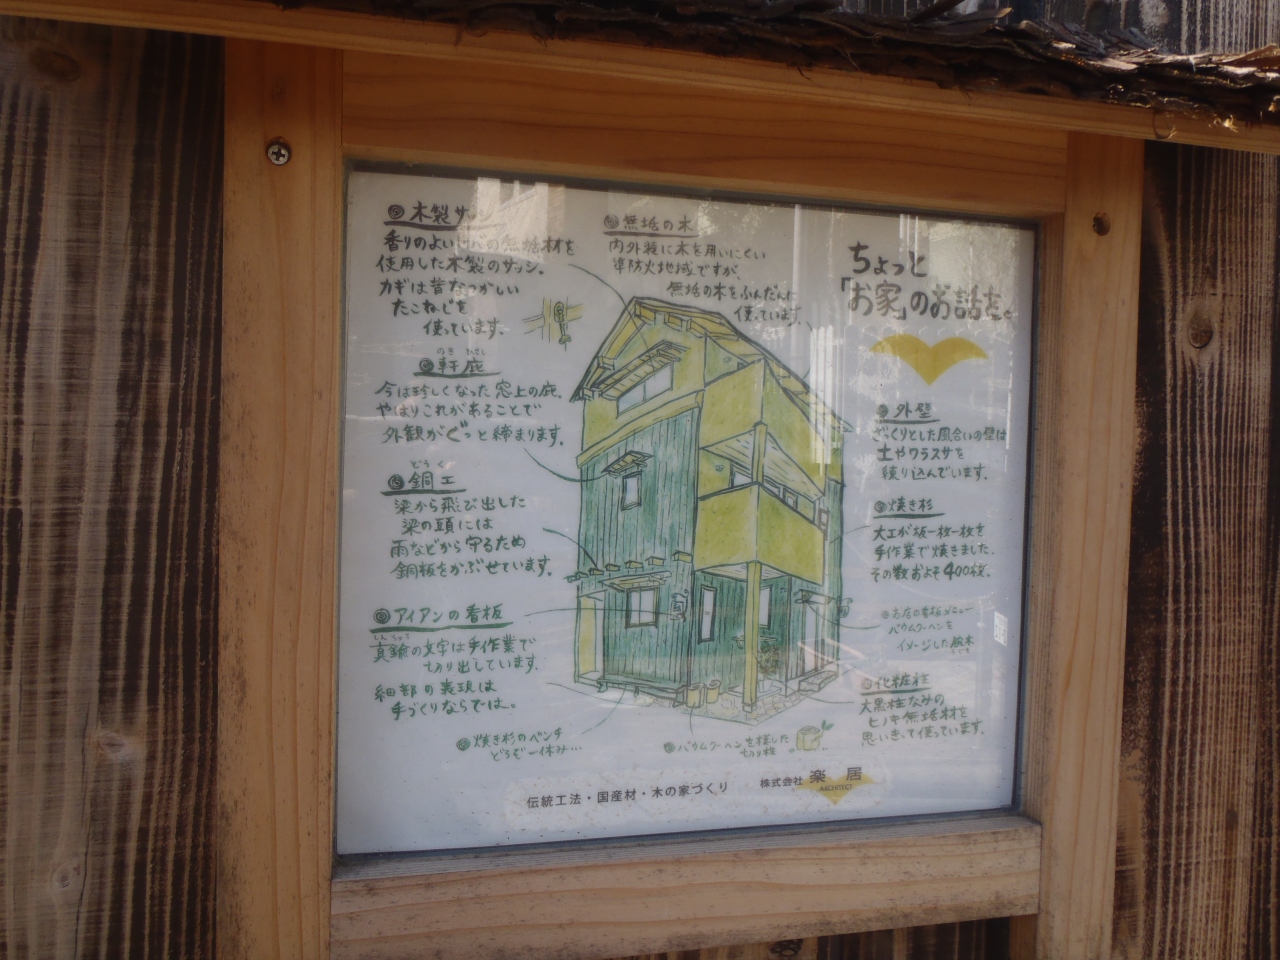 木製サッシ
香りのよいヒバの無垢材を
使用した木製のサッシ。
カギは昔なつかしい
たこねじを
使っています。
のき ひさし
軒庇
今は珍しくなった窓上の庇。
やはりこれがあることで
外観がぐっと締まります。
どうく
銅工
梁から飛び出した
梁の頭には
雨などから守るため
銅板をかぶせています。
アイアンの看板
しんちゅう
真鍮の文字は手作業で
切り出しています。
細部の表現は
手づくりならでは。
焼き杉のベンチ
どうぞ一休み…
無垢の木
内外装に木を用いにくい
準防火地域ですが、
無垢の木をふんだんに
使っています。
ちょっと
「お家」のお話を。
外壁
ざっくりとした風合いの壁は
土やワラスサを
練り込んでいます。
焼き杉
大工が板一枚一枚を
手作業で焼きました。
その数およそ400枚。
お店の看板メニュー
バウムクーヘンを
イメージした
化粧柱
大黒柱なみの
ヒノキ無垢材を
思いきって使っています。
バウムクーヘンを模した
切り株
伝統工法・国産材・木の家づくり
株式会社 楽居
ARCHITECT